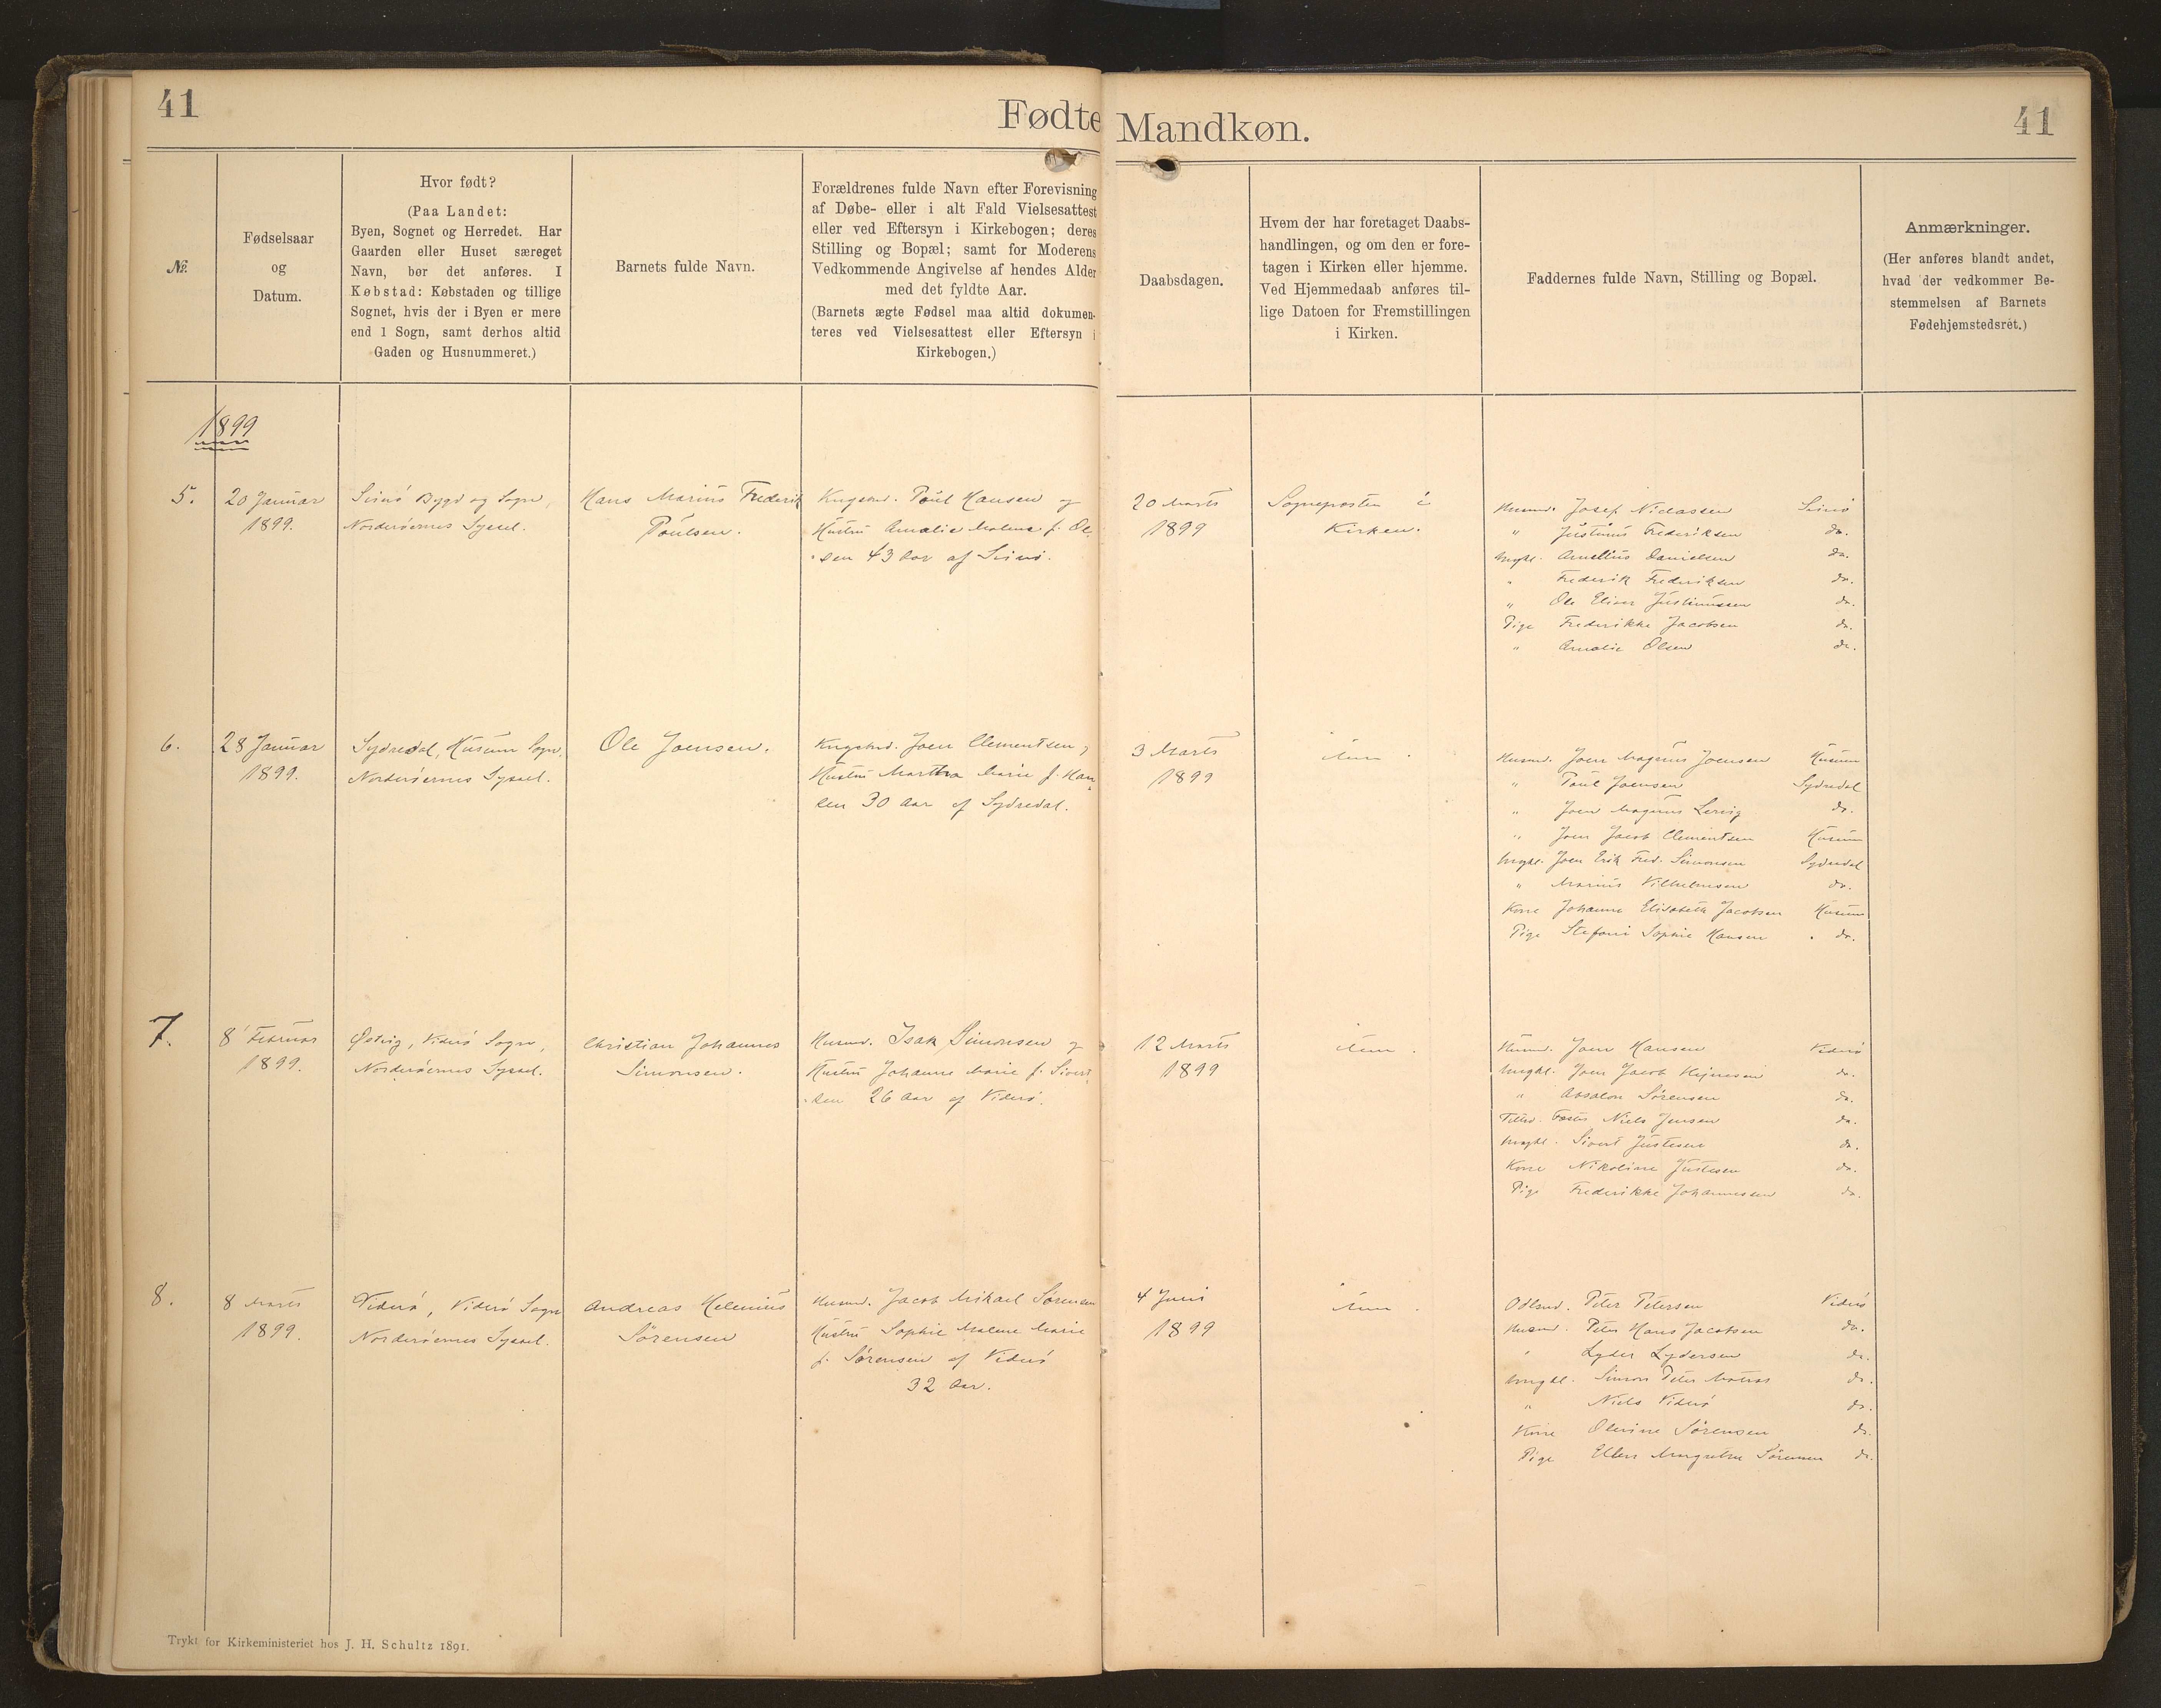 41
Fødte
Mandkøn.
41
№.
Fødselsaar
og
Datum.
Hvor født?
(Paa Landet:
Byen, Sognet og Herredet. Har
Gaarden eller Huset særeget
Navn, bør det anføres. I
Købstad: Købstaden og tillige
Sognet, hvis der i Byen er mere
end 1 Sogn, samt derhos altid
Gaden og Husnummeret.)
Barnets fulde Navn.
Forældrenes fulde Navn efter Forevisning
af Døbe- eller i alt Fald Vielsesattest
eller ved Eftersyn i Kirkebogen; deres
Stilling og Bopæl; samt for Moderens
Vedkommende Angivelse af hendes Alder
med det fyldte Aar.
(Barnets ægte Fødsel maa altid dokumen-
teres ved Vielsesattest eller Eftersyn i
Kirkebogen.)
Daabsdagen.
Hvem der har foretaget Daabs-
handlingen, og om den er fore-
tagen i Kirken eller hjemme.
Ved Hjemmedaab anføres til-
lige Datoen for Fremstillingen
i Kirken.
Faddernes fulde Navn, Stilling og Bopæl.
Anmærkninger.
(Her anføres blandt andet,
hvad der vedkommer Be-
stemmelsen af Barnets
Fødehjemstedsret.)
1899
5.
20 Januar
1899.
Svinø Bygd og Sogn,
Norderøernes Syssel.
Hans Marius Frederik
Poulsen.
Kngsmd. Poul Hansen og
Hustru Amalie Malene f. Ol-
sen 43 Aar af Svinø.
20 Marts
1899
Sognepræsten i
Kirken.
Husmd. Josef Niclassen Svinø
" Justinus Frederiksen do.
Ungkl. Danielsen do.
" Frederik Frederiksen do.
" Ole Justinussen do.
Pige Frederikke Jacobsen do.
" Amalie Olsen do.
6.
28 Januar
1899.
Sydredal, Husum Sogn,
Norderøernes Syssel.
Ole Joensen.
Kngsmd. Joen Clementsen og
Hustru Martha Marie f. Han-
sen 30 Aar af Sydredal.
3 Marts
1899
Husmd. Joen Magnus Joensen Husum
" Poul Joensen Sydredal
" Joen Magnus Lervig do.
" Joen Jacob Clementsen Husum
Ungkl. Joen Erik Fred. Simonsen Sydredal
" Marius Vilhelmsen do.
Kone Johanne Elisabeth Jacobsen Husum
Pige Sophie Hansen do.
7.
8 Februar
1899.
Østvig, Viderø Sogn,
Norderøernes Syssel.
Christian Johannes
Simonsen.
Husmd. Isak Simonsen og
Hustru Johanne Marie f. Sivert-
sen 26 Aar af Viderø.
12 Marts
1899
Husmd. Joen Hansen Viderø
Ungkl. Joen Jacob do.
" Absalon Sørensen do.
Niels Jensen do.
Ungkl. Sivert Justesen do.
Kone Nikoline Justesen do.
Pige Frederikke Johannessen do.
8.
8 Marts
1899.
Viderø, Viderø Sogn
Norderøernes Syssel.
Andreas Helenius
Sørensen
Husmd. Jacob Mikael Sørensen
Hustru Sophie Malene Marie
f. Sørensen af Viderø
32 Aar.
4 Juni
1899
Odlsmd. Peter Petersen Viderø
Husmd. Peter Hans Jacobsen do.
" Lyder Lydersen do.
Ungkl. Simon Peter Matras do.
" Niels Viderø do.
Kone Olevine Sørensen do.
Pige Ellen Sørensen do.
Trykt for Kirkeministeriet hos J. H. Schultz 1891.